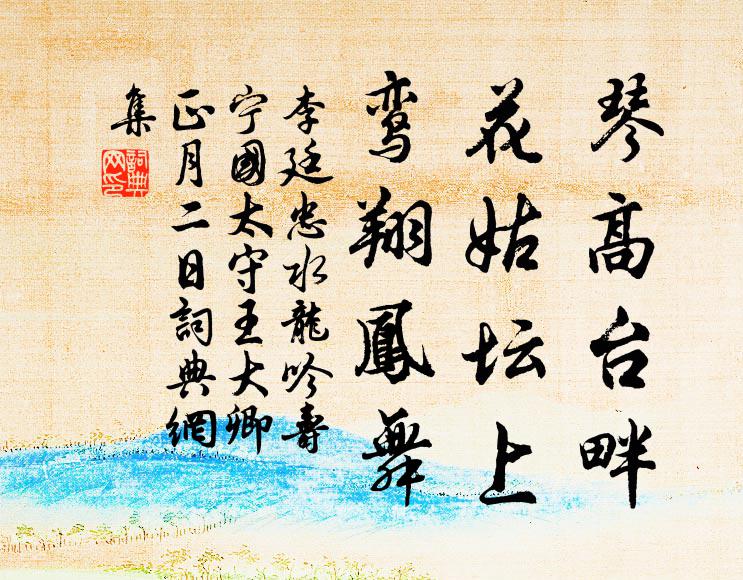 琴高台畔
花姑坛上
鸾翔鳳舞
李廷忠水龍吟壽
宁國太守王大卿
正月二日詞典網
集
詞典
网印